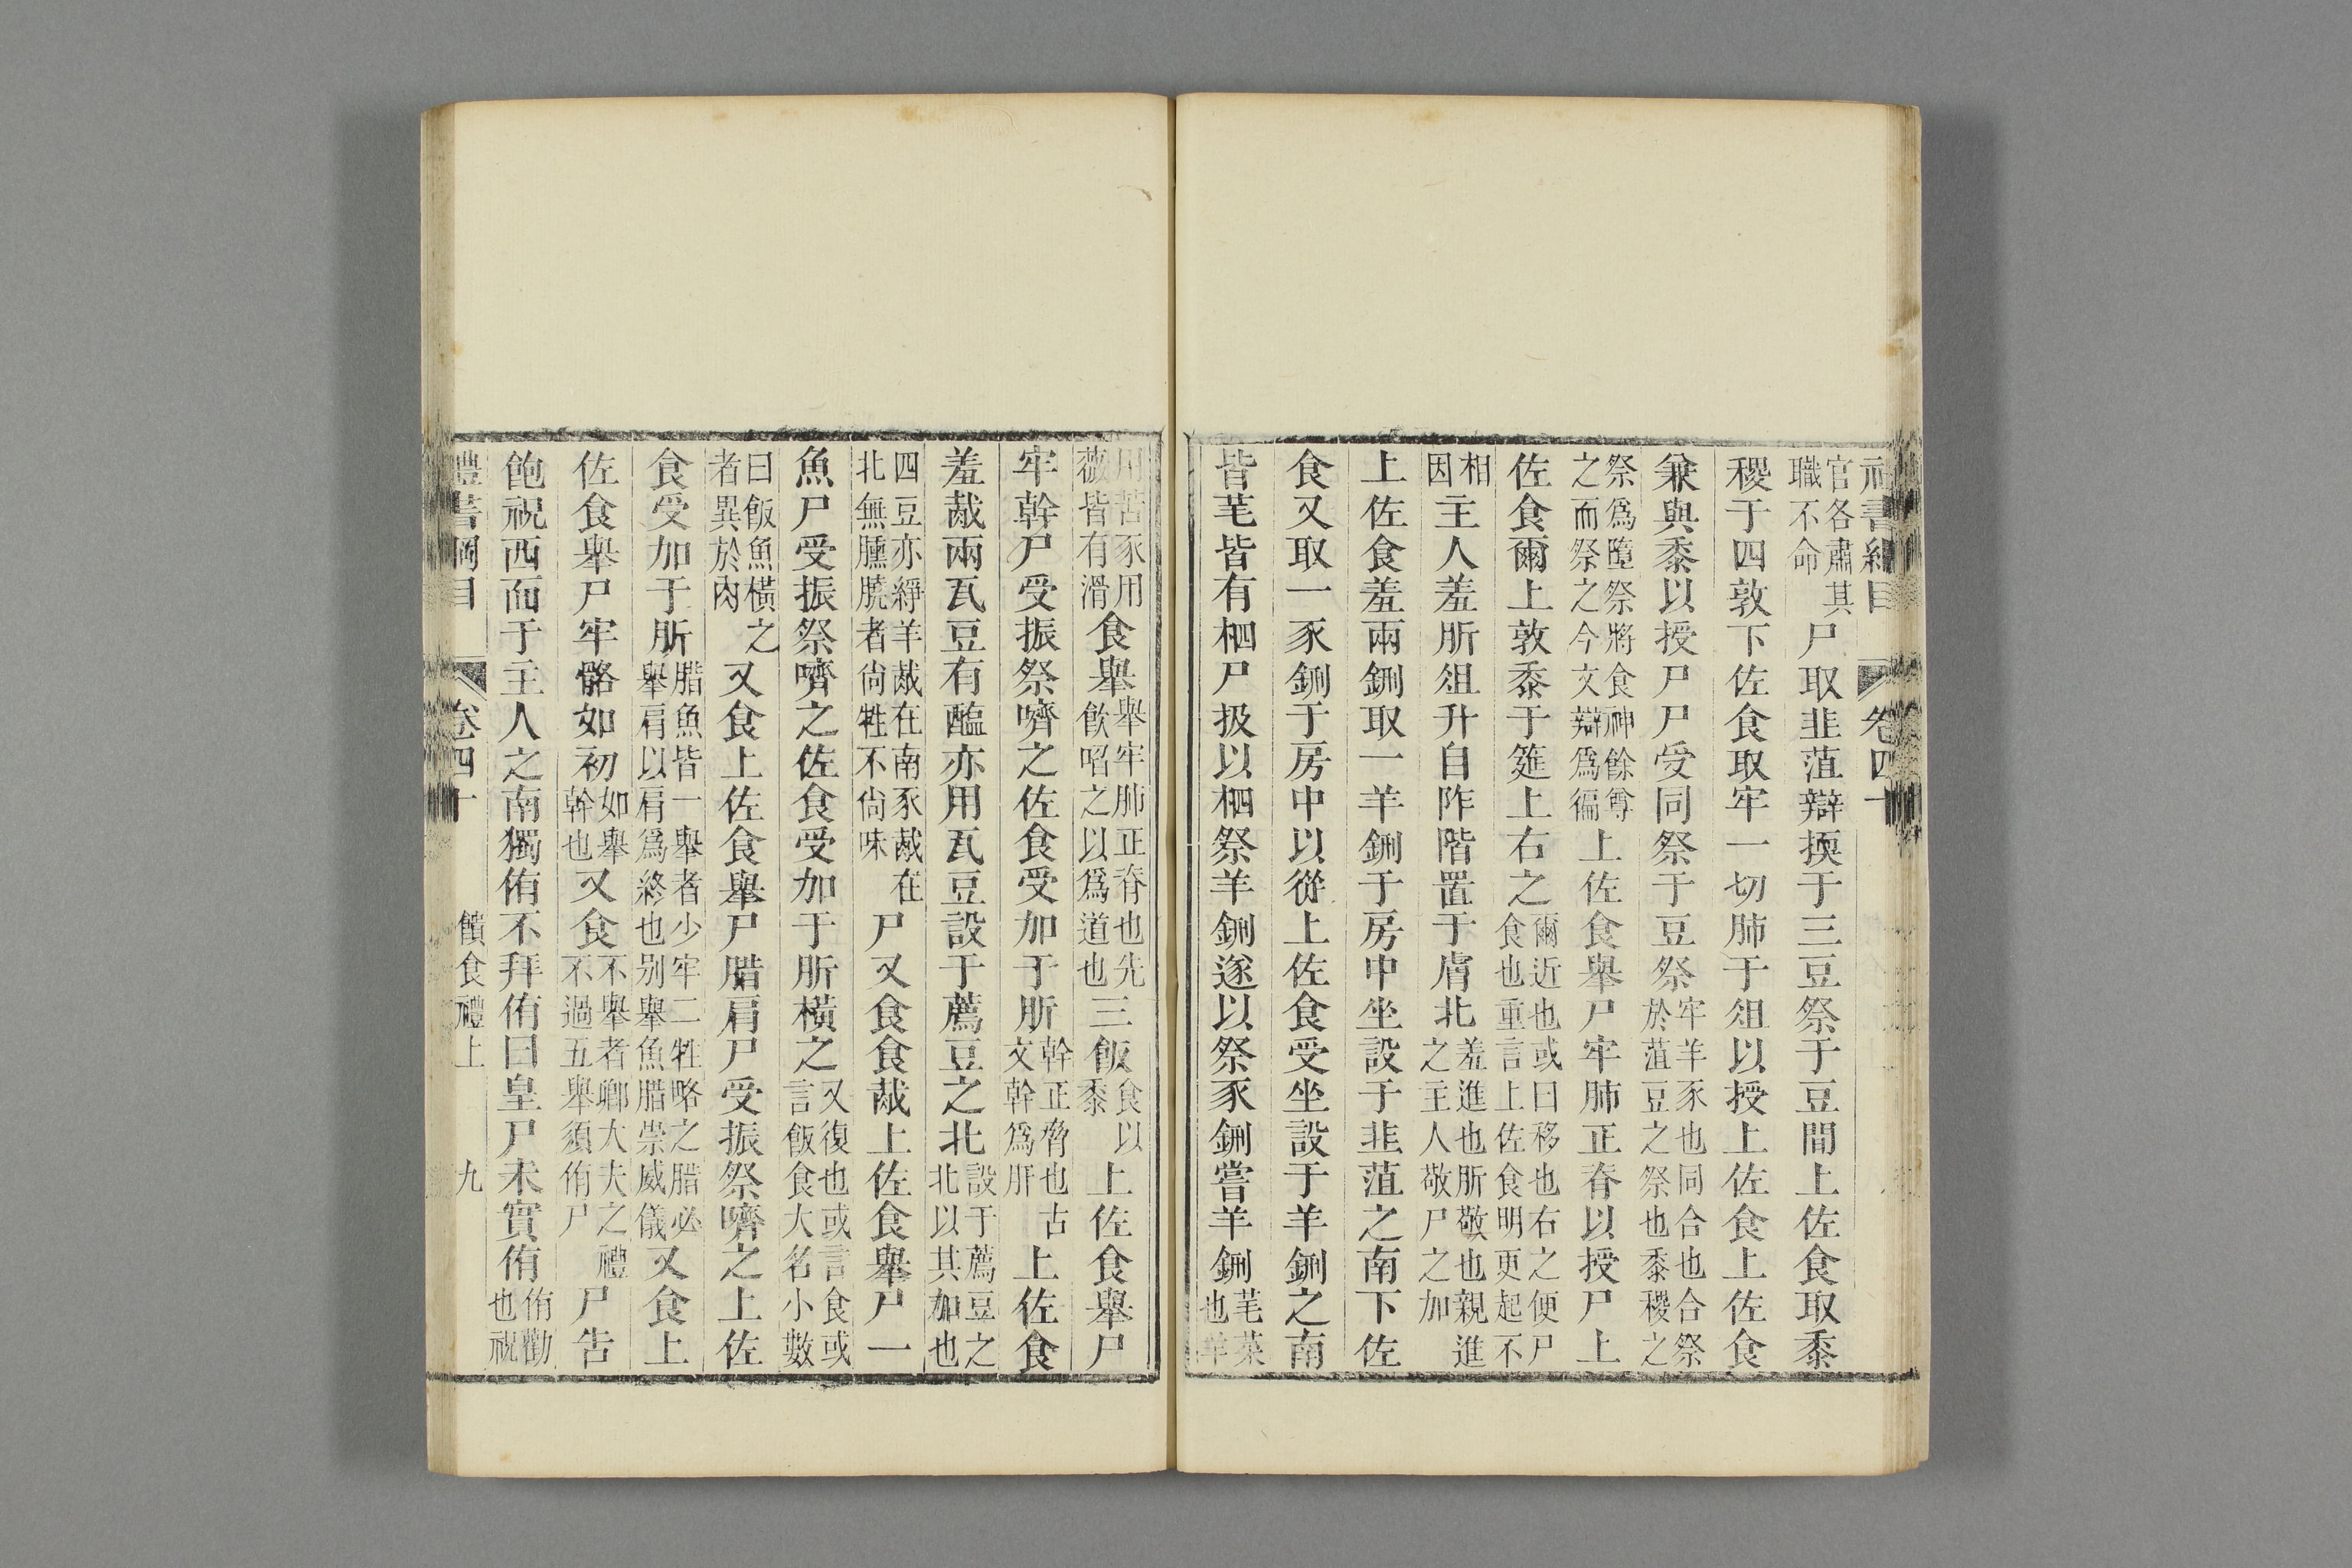 禮書綱目　卷四十
官各肅其職不命尸取韭菹辯擩于三豆祭于豆間上佐食取黍
稷于四敦下佐食取牢一切肺于俎以授上佐食上佐食
兼與黍以授尸尸受同祭于豆祭牢羊豕也同合也合祭於菹豆之祭也黍稷之
祭爲墮祭將食神餘尊之而祭之今文辯爲徧上佐食舉尸牢肺正脊以授尸上
佐食爾上敦黍于筵上右之爾近也或曰移也右之便尸食也重言上佐食明更起不
相因主人羞肵俎升自阼階置于膚北羞進也肵敬也親進之主人敬尸之加
上佐食羞兩鉶取一羊鉶于房中坐設于韭菹之南下佐
食又取一豕鉶于房中以從上佐食受坐設于羊鉶之南
皆芼皆有柶尸扱以柶祭羊鉶遂以祭豕鉶嘗羊鉶芼菜也羊
用苦豕用薇皆有滑食舉舉牢肺正脊也先飮啗之以爲道也三飯食以黍上佐食舉尸
牢幹尸受振祭嚌之佐食受加于肵幹正脅也古文幹爲肝上佐食
羞胾兩瓦豆有醢亦用瓦豆設于薦豆之北設于薦豆之北以其加也
四豆亦綪羊胾在南豕胾在北無臐膮者尙牲不尙味尸又食食胾上佐食舉尸一
魚尸受振祭嚌之佐食受加于肵橫之又復也或言食或言飯食大名小數
曰飯魚橫之者異於肉又食上佐食舉尸腊肩尸受振祭嚌之上佐
食受加于肵腊魚皆一舉者少牢二牲略之腊必舉肩以肩爲終也別舉魚腊崇威儀又食上
佐食舉尸牢骼如初如舉幹也又食不舉者卿大夫之禮不過五舉須侑尸尸告
飽祝西面于主人之南獨侑不拜侑曰皇尸未實侑侑勸也祝
禮書綱目　卷四十　饋食禮上　九